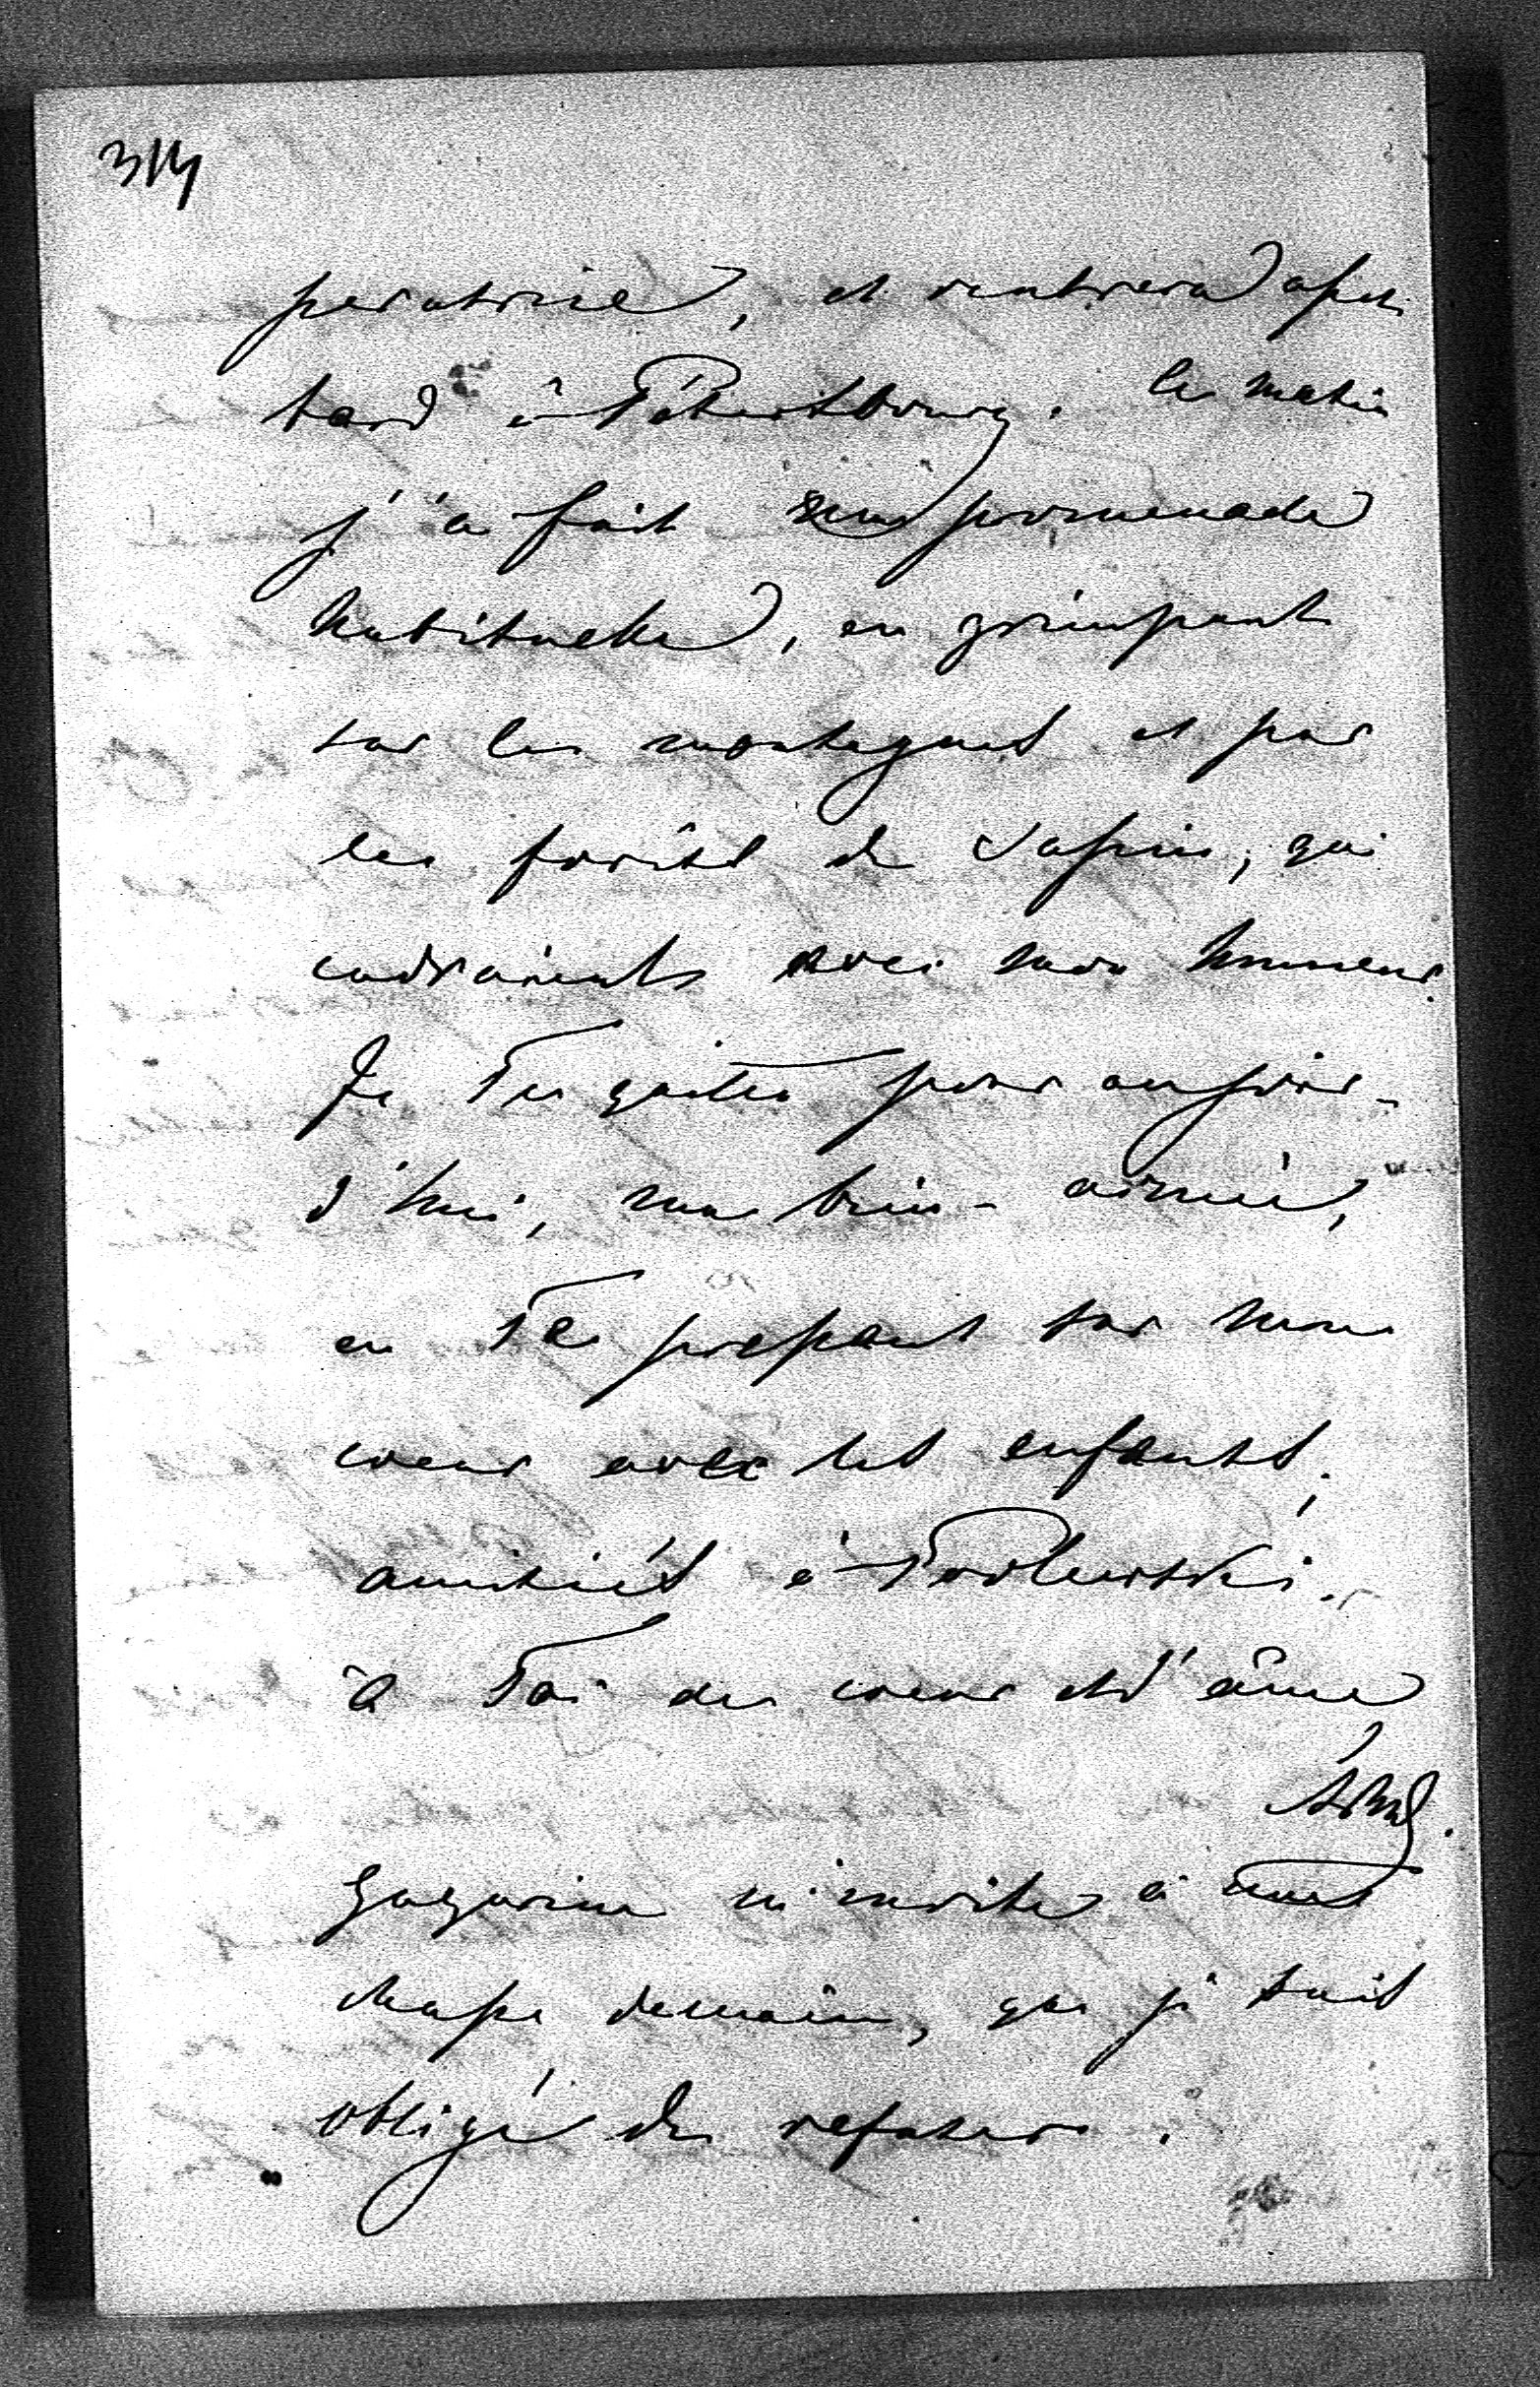 314
peratrice, et rentrera assez
tard à Pétersbourg. Ce matin
j'ai fait ma promenade
habituelle, en grimpant
sur les montagnes et par
les forêts de sapins, qui
cadraients avec mon humeur.
Je Te quitte pour aujour-
d'hui, ma bien-aimée,
en Te pressant sur mon
coeur avec les enfants,
amitiés à
à Toi de coeur et d'âme
Gagarine m'invite à une
chasse demain, que je suis
obligé de refuser.